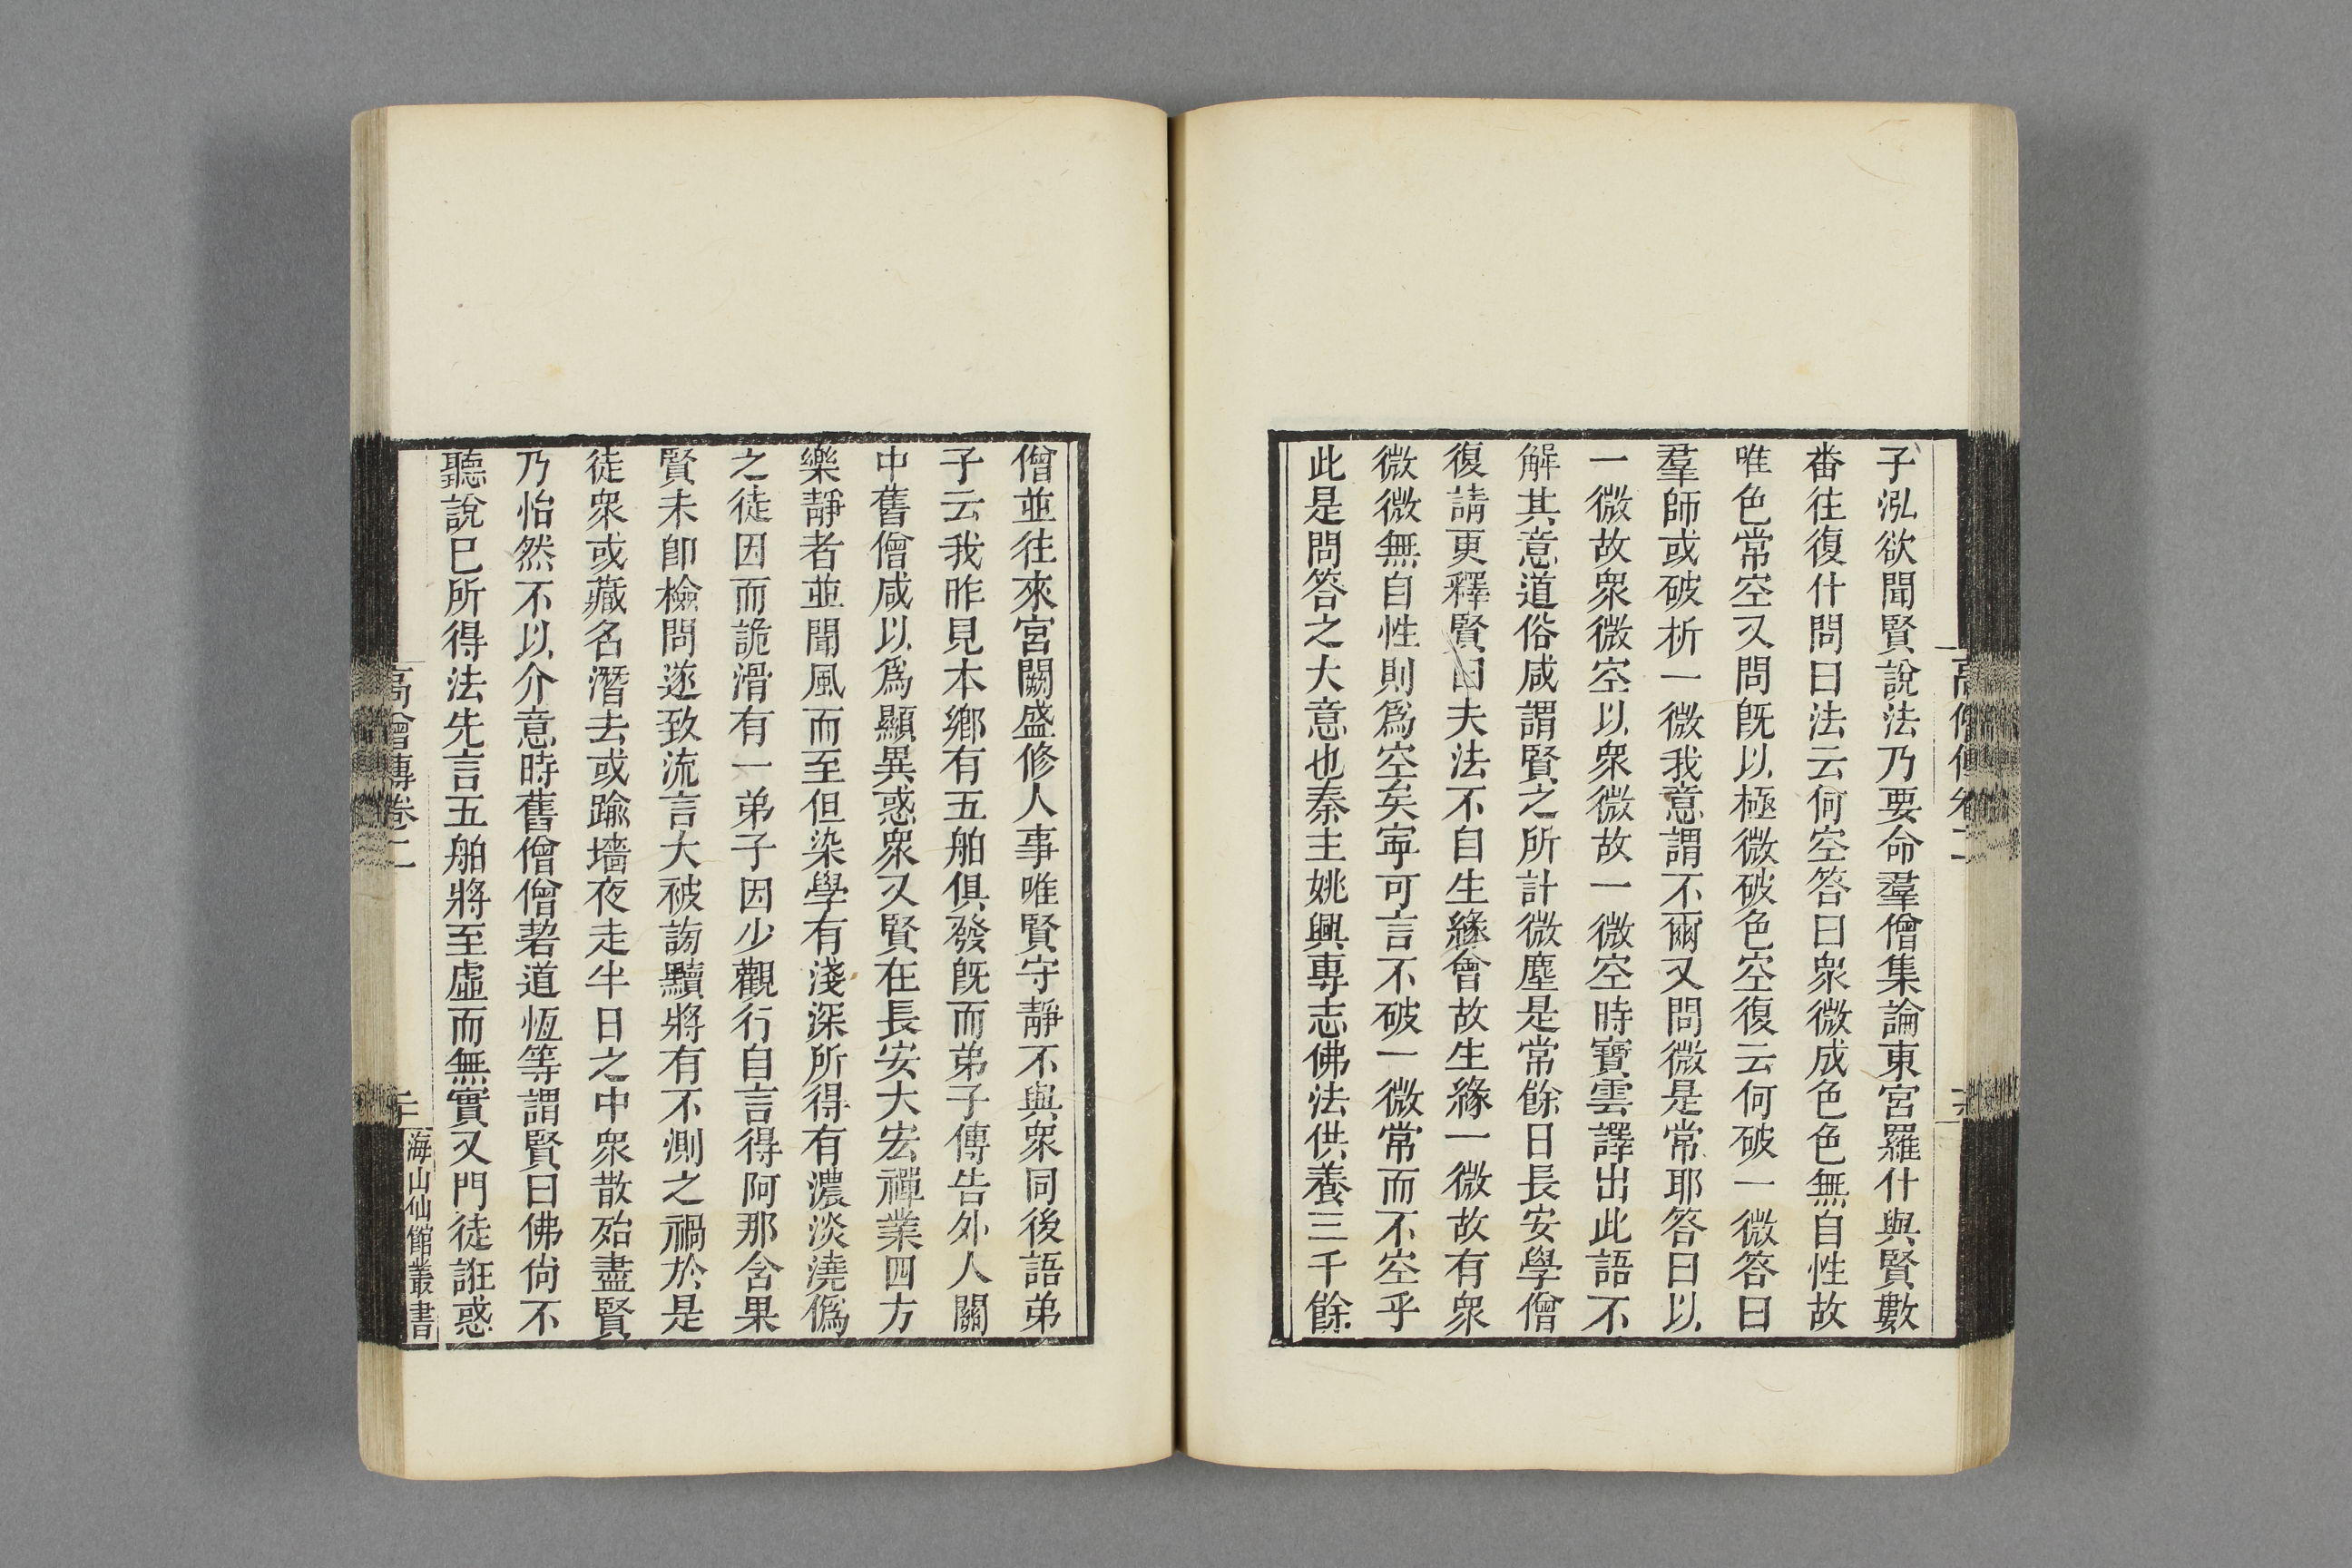 子泓欲聞賢說法乃要命羣僧集論東宮羅什與賢數
番往復什問曰法云何空答曰衆微成色色無自性故
唯色常空又問旣以極微破色空復云何破一微答曰
羣師或破析一微我意謂不爾又問微是常耶答曰以
一微故衆微空以衆微故一微空時寶雲譯出此語不
解其意道俗咸謂賢之所計微塵是常餘日長安學僧
復請更釋賢曰夫法不自生緣會故生緣一微故有衆
微微無自性則爲空矣寧可言不破一微常而不空乎
此是問答之大意也秦主姚興專志佛法供養三千餘
僧並往來宮闕盛修人事唯賢守靜不與衆同後語弟
子云我昨見本鄉有五舶俱發旣而弟子傳告外人關
中舊僧咸以爲顯異惑衆又賢在長安大宏禪業四方
樂靜者並聞風而至但染學有淺深所得有濃淡澆僞
之徒因而詭滑有一弟子因少觀行自言得阿那含果
賢未卽檢問遂致流言大被謗黷將有不測之禍於是
徒衆或藏名潛去或踰墻夜走半日之中衆散殆盡賢
乃怡然不以介意時舊僧僧䂮道恆等謂賢曰佛尙不
聽說已所得法先言五舶將至虛而無實又門徒誑惑
高僧傳卷二
海山仙館叢書